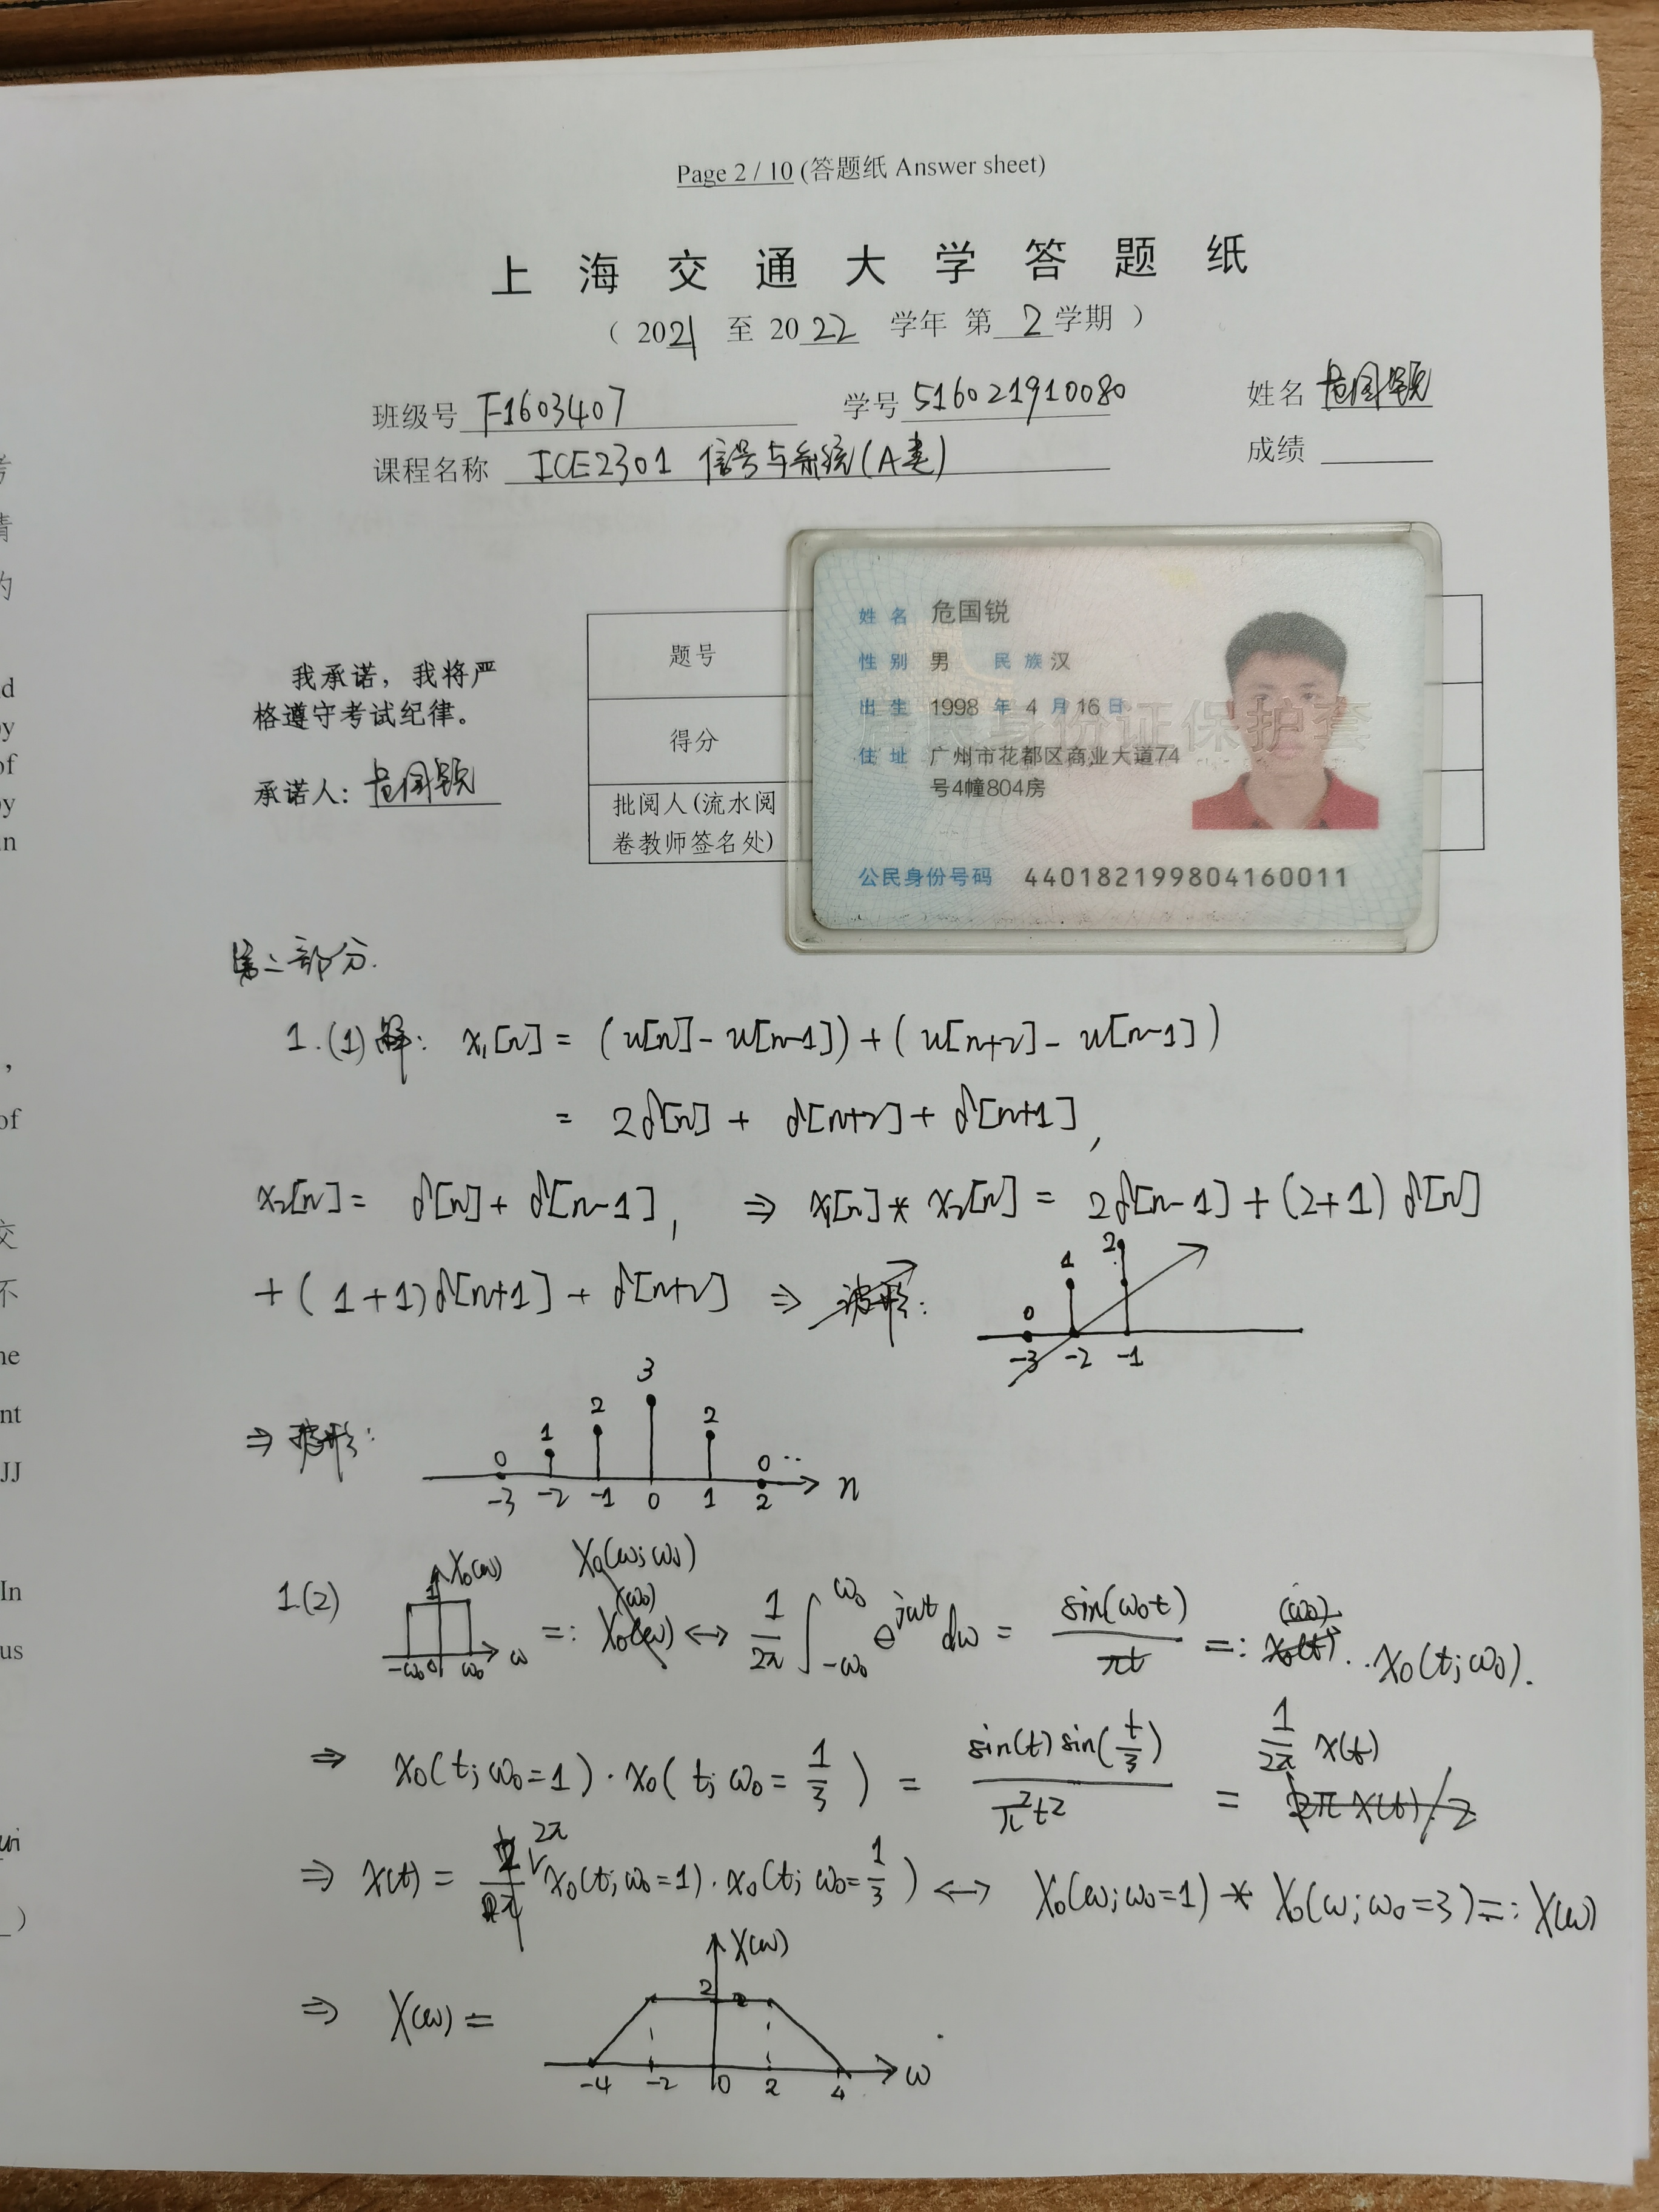 Page 2 / 10 (答题纸 Answer sheet)
上海交通大学答题纸
（ 2021 至 2022 学年 第 2 学期 ）
班级号 F1603407 学号 516021910080 姓名 危国锐
课程名称 ICE2301 信号与系统(A类) 成绩
我承诺，我将严
格遵守考试纪律。
承诺人：危国锐
题号
得分
批阅人(流水阅
卷教师签名处)
姓名 危国锐
性别 男 民族 汉
出生 1998 年 4 月 16 日
住址 广州市花都区商业大道74
号4幢804房
公民身份号码 440182199804160011
居民身份证保护套
第二部分.
1.(1) 解: x₁[n] = (u[n] - u[n-1]) + (u[n+2] - u[n-1])
= 2δ[n] + δ[n+2] + δ[n+1],
x₂[n] = δ[n] + δ[n-1], ⇒ x₁[n] * x₂[n] = 2δ[n-1] + (2+1) δ[n]
+ (1+1) δ[n+1] + δ[n+2] ⇒ 波形:
0 1 2
-3 -2 -1
⇒ 波形:
0 1 2 3 2 0 ..
-3 -2 -1 0 1 2 n
1.(2) 1 X₀(ω) -ω₀ 0 ω₀ ω =: X₀(ω;ω₀) ↔ 1/2π ∫_{-ω₀}^{ω₀} e^{jωt} dω = sin(ω₀t)/πt =: x₀(t;ω₀).
⇒ x₀(t; ω₀=1) · x₀(t; ω₀=1/3) = sin(t) sin(t/3)/π²t² = 1/2π x(t)
⇒ x(t) = 2π x₀(t; ω₀=1) · x₀(t; ω₀=1/3) ↔ X₀(ω; ω₀=1) * X₀(ω; ω₀=3) =: X(ω)
⇒ X(ω) =
X(ω)
2
-4 -2 0 2 4 ω